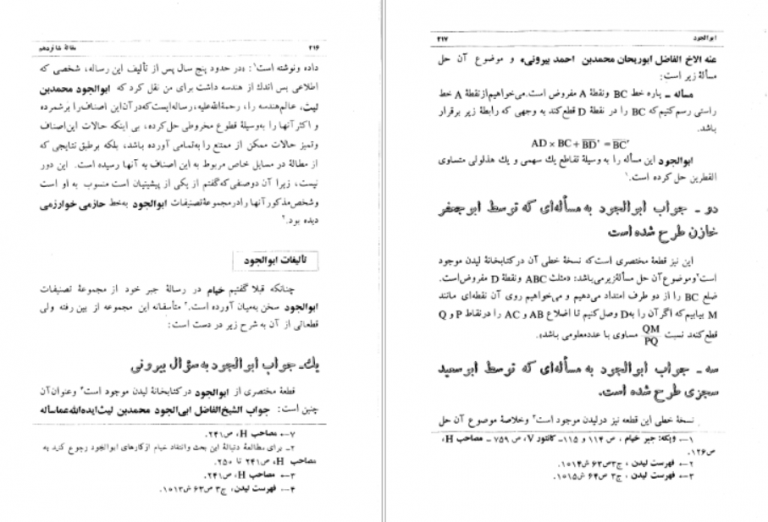 ۲۱۶
مقالهٔ شانزدهم
داده ونوشته است۱: «در حدود پنج سال پس از تألیف این رساله، شخصی که
اطلاعی بس اندک از هندسه داشت برای من نقل کرد که ابوالجود محمدبن
لیث، عالم‌هندسه را، رحمةالله‌علیه، رساله‌ایست‌که‌درآن‌این‌اصناف‌را برشمرده
و اکثرآنها را به‌وسیلهٔ قطوع مخروطی حل‌کرده، بی اینکه حالات این‌اصناف
وتمیز حالات ممکن از ممتنع را به‌تمامی آورده باشد، بلکه برطبق نتایجی که
از مطالهٔ در مسایل خاص مربوط به این اصناف به آنها رسیده است. این دور
نیست، زیرا آن دوصفی‌که‌گفتم از یکی از پیشینیان است منسوب به او است
وشخص‌مذکورآنها را درمجموعهٔ تصنیفات ابوالجود به‌خط حازمی خوارزمی
دیده بود.۲
تألیفات ابوالجود
چنانکه قبلا گفتیم خیام در رسالهٔ جبر خود از مجموعهٔ تصنیفات
ابوالجود سخن به‌میان آورده است.۳ متأسفانه این مجموعه از بین رفته ولی
قطعاتی از آن به شرح زیر در دست است:
یك‌ـ جواب ابوالجود به سؤال بیرونی
قطعهٔ مختصری از ابوالجود در کتابخانهٔ لیدن موجود است۴ وعنوان‌آن
چنین است: جواب الشیخ‌الفاضل ابی‌الجود محمدبن لیث‌ایده‌الله‌عماسأله
ـ مصاحب H، ص۲۴۱.
۲ـ برای مطالعهٔ دنبالهٔ این بحث وانتقاد خیام ازکارهای ابوالجود رجوع کنید به
مصاحب H، ص۲۴۱ تا ۲۵۰.
۳ـ مصاحب H، ص۲۴۱.
۴ـ فهرست لیدن، ج۳ ص۶۳ ش۱۰۱۳.
ابوالجود
۲۱۷
عنه الاخ الفاضل ابوریحان محمدبن احمد بیرونی» و موضوع آن حل
مسألهٔ زیر است:
مسأله ـ پاره خط BC ونقطهٔ A مفروض است.می‌خواهیم‌ازنقطهٔ A خط
راستی رسم‌کنیم‌که BC را در نقطهٔ D قطع‌کند به وجهی که رابطهٔ زیر برقرار
باشد.
AD × BC + BD² = BC²
ابوالجود این مسأله را به وسیلهٔ تقاطع یك سهمی و یك هذلولی متساوی
القطرین حل کرده است.۱
دو ـ جواب ابوالجود به مسأله‌ای که توسط ابوجعفر
خازن طرح شده است
این نیز قطعهٔ مختصری است‌که نسخهٔ خطی آن درکتابخانهٔ لیدن موجود
است۲وموضوع‌آن حل مسألهٔزیرمی‌باشد: «مثلث ABC ونقطهٔ D مفروض‌است.
ضلع BC را از دو طرف امتداد می‌دهیم و می‌خواهیم روی آن نقطه‌ای مانند
M بیابیم‌که اگرآن را بهD وصل‌کنیم تا اضلاع AB و AC را درنقاط P و Q
قطع کند، نسبت QM/PQ مساوی با عددمعلومی باشد».
سه ـ جواب ابوالجود به مسأله‌ای که توسط ابوسعید
سجزی طرح شده است.
نسخهٔ خطی این قطعه نیز درلیدن موجود است۳ وخلاصهٔ موضوع آن حل
۱ـ ویکه: جبر خیام ، ص ۱۱۴ و ۱۱۵ـ کانتور V، ص ۷۵۹ ـ مصاحب H،
ص۱۲۶.
۲ـ فهرست لیدن ، ج۳ص۶۳ ش۱۰۱۴.
۳ـ فهرست لیدن ، ج۳ ص۶۴ ش۱۰۱۵.